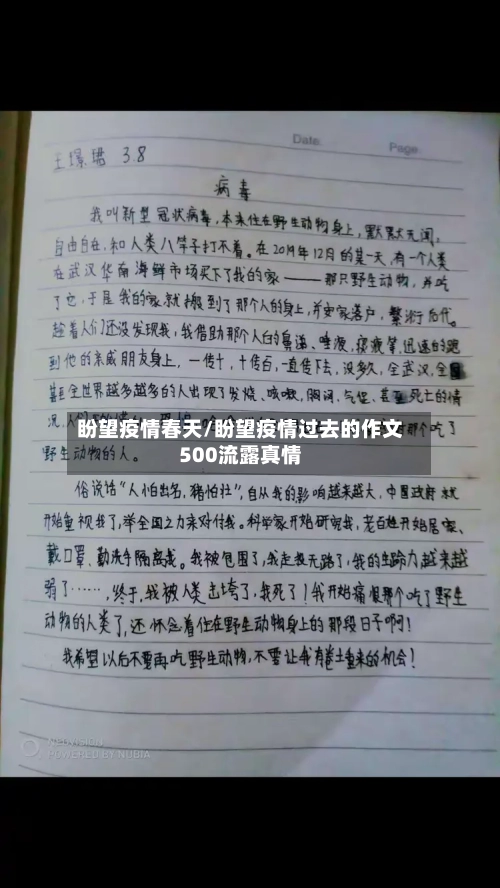 Date.
Page.
王璟珺 3.8
病毒
我叫新型冠状病毒,本来住在野生动物身上,默默无闻,
自由自在,和人类八竿子打不着。在2019年12月的某一天,有一个人类
在武汉华南海鲜市场买下了我的家——那只野生动物,并吃
了它,于是我的家就搬到了那个人的身上,并安家落户,繁衍后代。
趁着人们还没发现我,我借助那个人的鼻涕、唾液、痰液等,迅速的跑
到他的亲戚朋友身上,一传十,十传百,一直传下去,没多久,全武汉,全国
甚至全世界越多越多的人出现了发烧、咳嗽,胸闷,气促,甚至死亡的情
况,人们
那个吃了
盼望疫情春天/盼望疫情过去的作文
500流露真情
野生动物的人。
俗说话“人怕出名,猪怕壮”,自从我的影响越来越大,中国政府就
开始重视我了,举全国之力来对付我。科学家开始研究我,老百姓开始居家、
戴口罩、勤洗手隔离我。我被包围了,我走投无路了,我的生命力越来越
弱了……,终于,我被人类击垮了,我死了!我开始痛恨那个吃了野生
动物的人类了,还怀念着住在野生动物身上的那段日子啊!
我希望以后不要再吃野生动物,不要让我有卷土重来的机会!
POWERED BY NUBIA